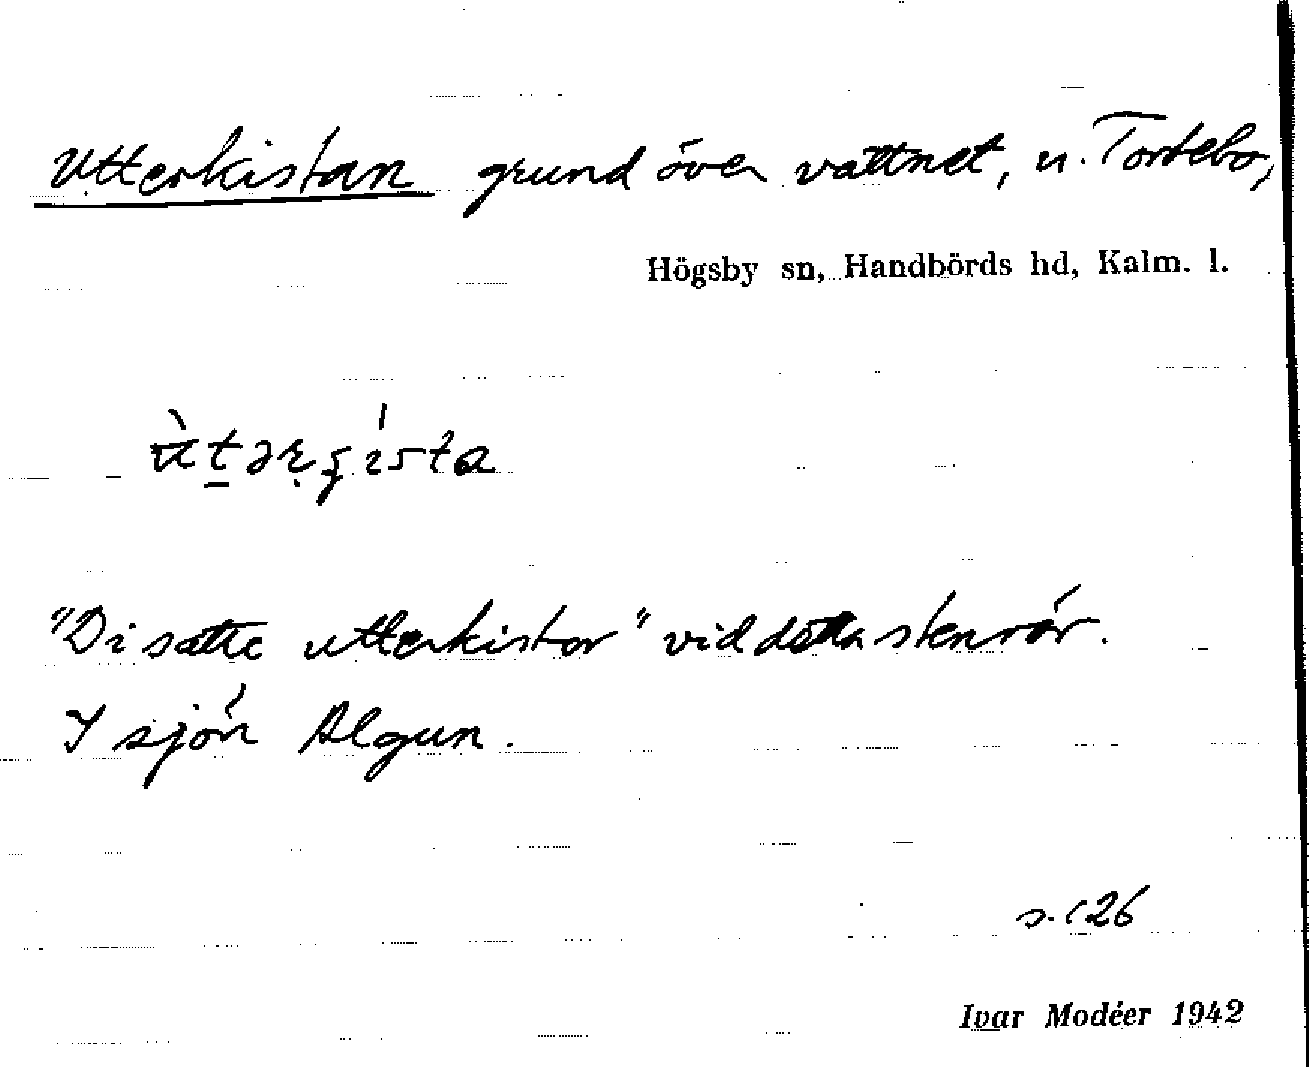 Utterkistan grund över vattnet, u. Tortebo,
Högsby sn, Handbörds hd, Kalm. l.
"Di satte utterkistor" vid detta stenrör.
I sjön Algun.
s. 126
Ivar Modéer 1942